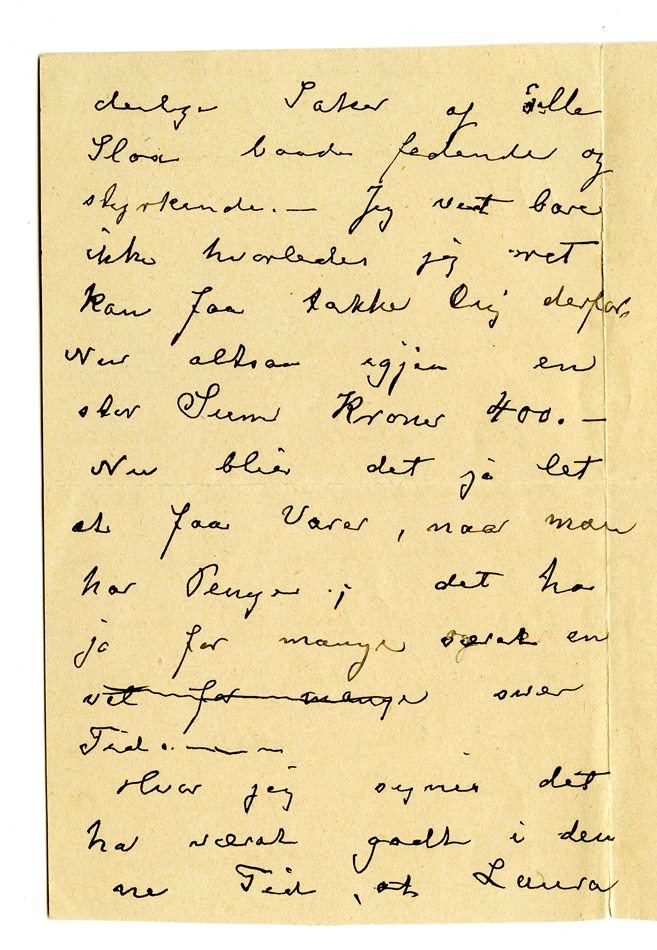 deilige Saker af alle
Slos baade fedende og
styrkende. — Jeg veet bare
ikke hvorledes jeg ret
kan faa takke Dig derfor.
Nu altsaa igjen en
stor Sum Kroner 400. —
Nu blir det jo let
at faa Varer, naar man
har Penge; det ha
jo for mange været en
vet for mange svær
Tid. — — —
Hvor jeg synes det
ha været godt i den
ne Tid, at Laura